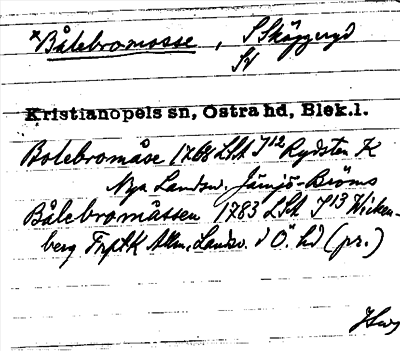 *Bålebromosse, S Sköggsryd
Sv
Kristianopels sn, Östra hd, Blek.l.
Bolebromåse 1768 LSA I12 Rydsten K
Nya Landsv. Jämjö-Bröms
Bålebromåssen 1783 LSA I13 Wicken-
berg TrptK Allm. Landsv. i Ö. hd (pr.)